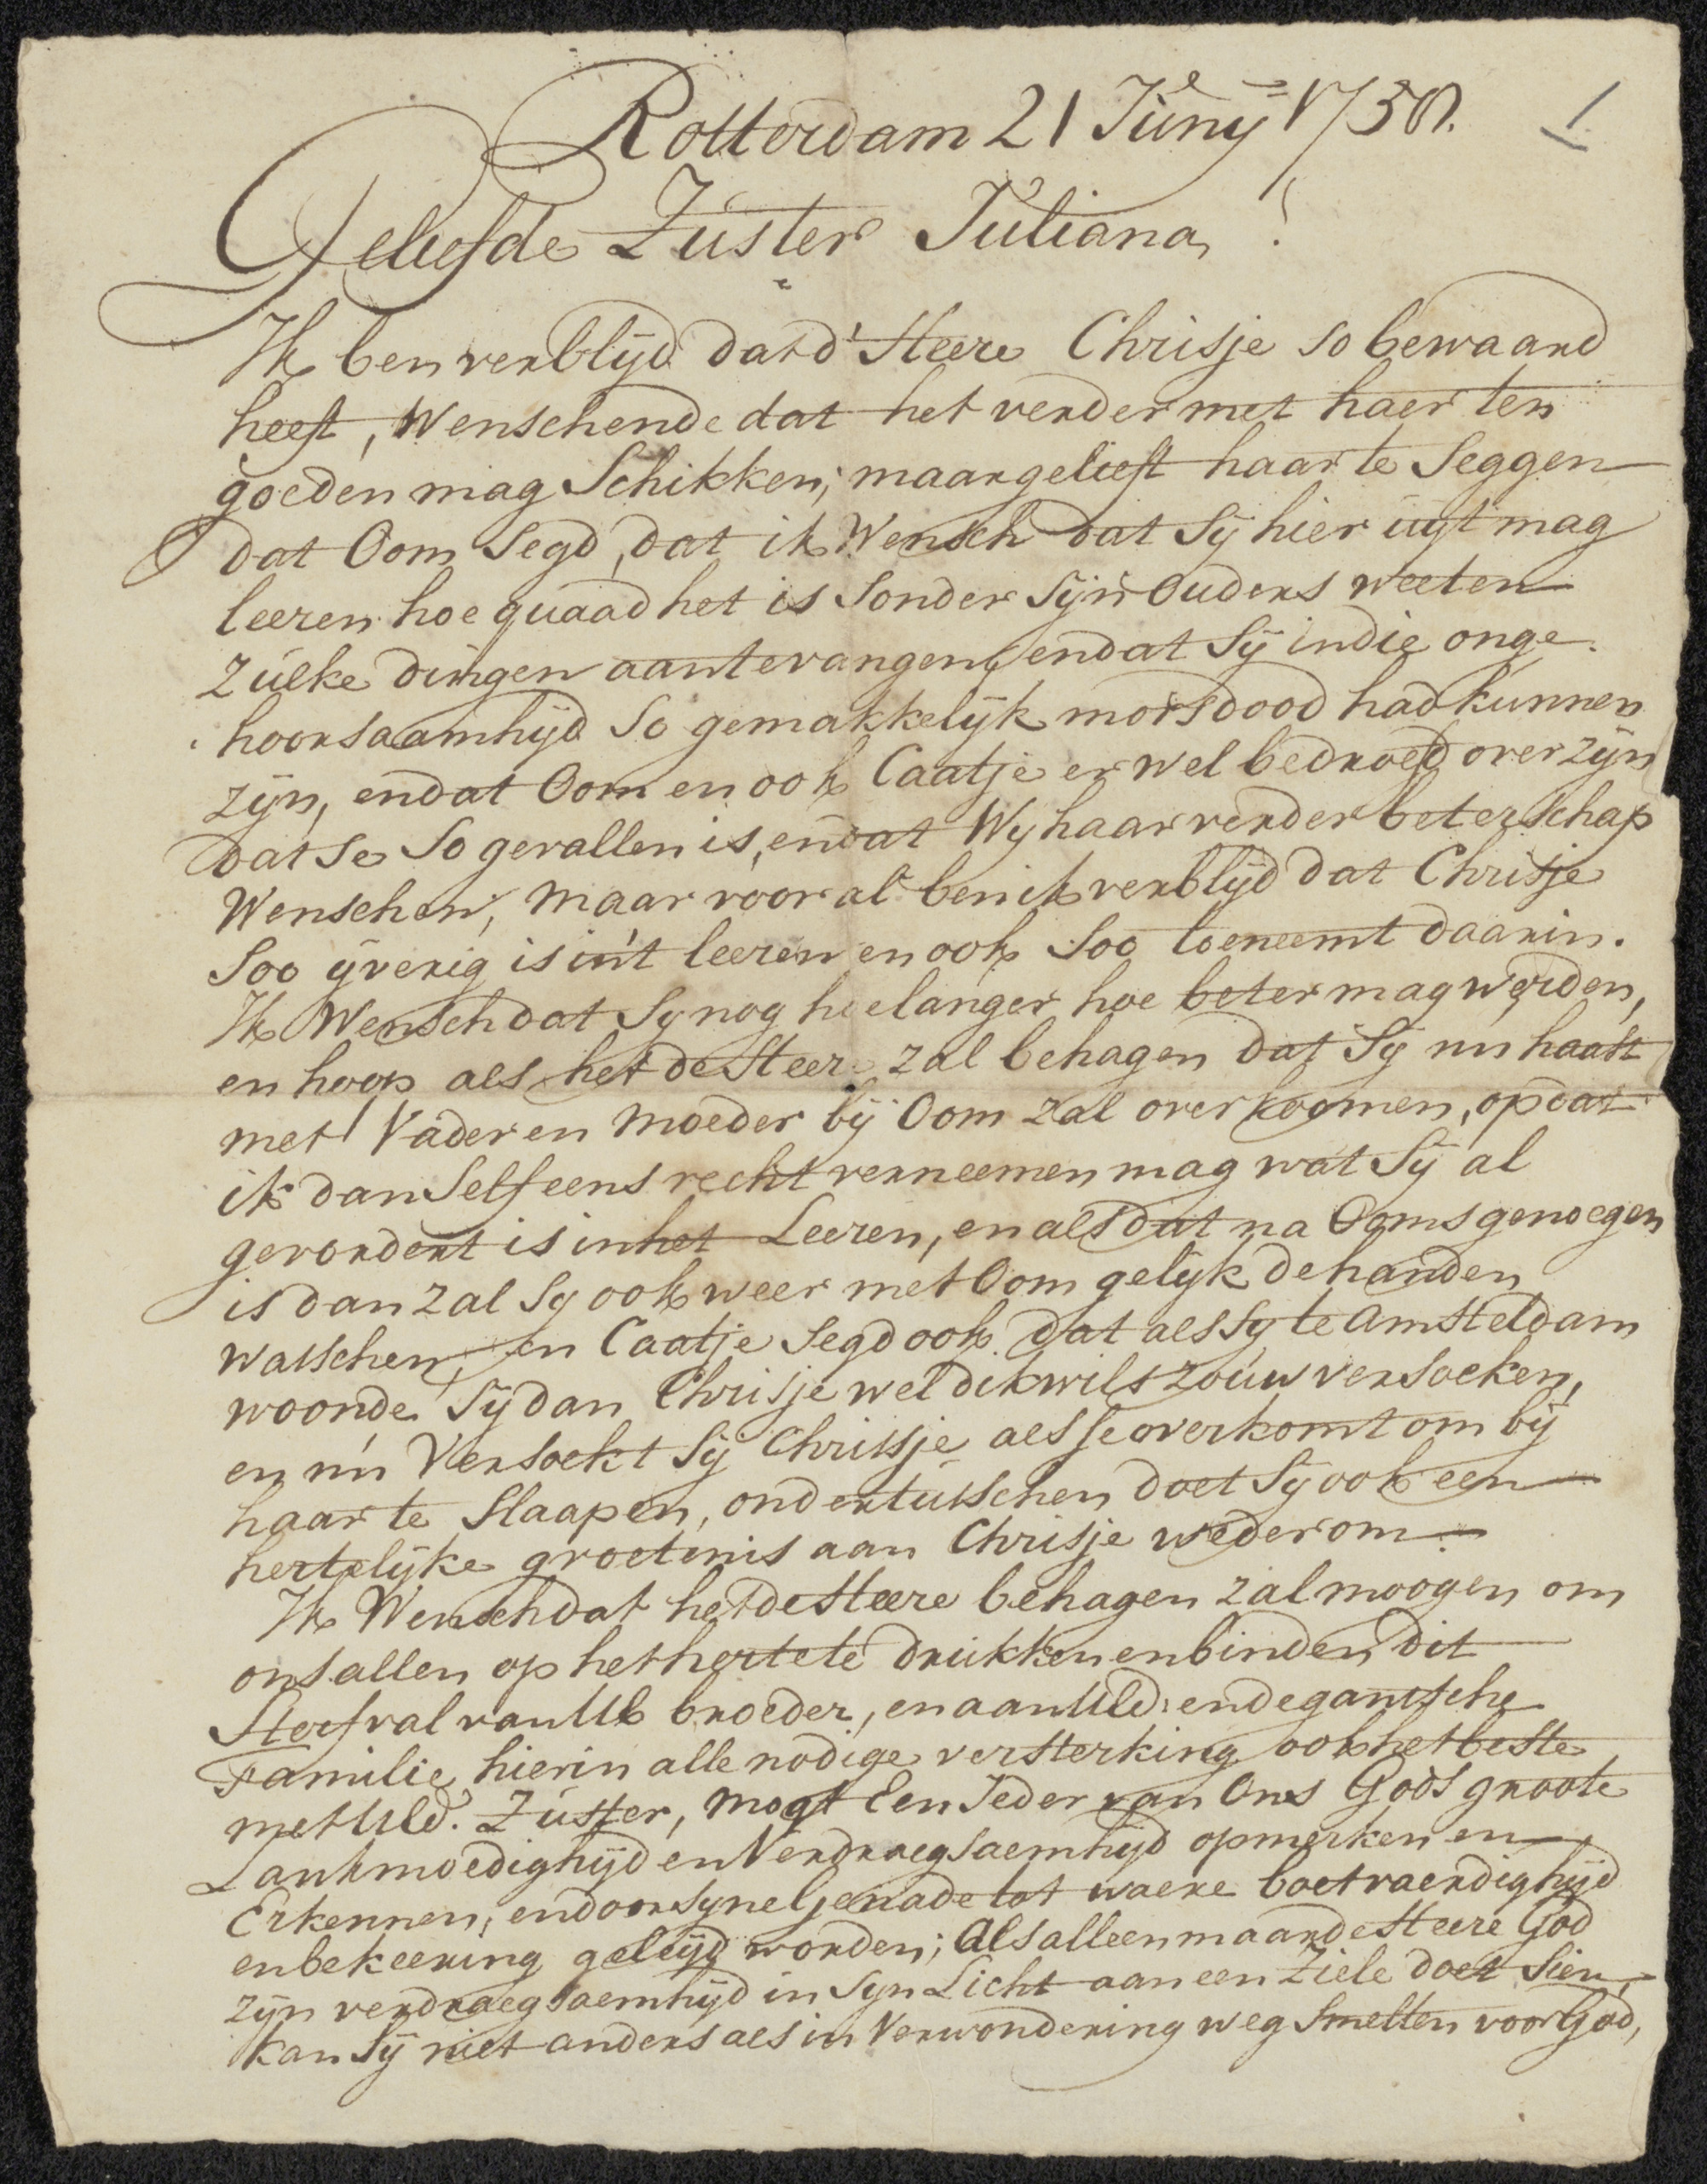 Rotterdam 21 Juny 1750. 1
Geliefde Zuster Juliana!
Ik ben verblyd dat d' Heere Chrisje so bewaard
heeft, Wenschende dat het verder met haer ten
goeden mag Schikken; maar gelieft haar te Seggen
dat Oom Segd, dat ik Wensch dat Sij hier uijt mag
leeren hoe quaad het is Sonder Sijn Ouders weeten
Zulke dingen aantevangen, en dat Sij in die onge-
hoorsaamhijd So gemakkelijk morsdood had kunnen
zijn, en dat Oom en ook Caatje er wel bedroefd over zijn
dat Se So gevallen is, en dat Wy haar verder beterschap
Wenschen, maar voor al ben ik verblijd dat Chrisje
Soo ijverig is in't leeren en ook Soo toeneemt daarin.
Ik Wensch dat Sy nog hoe langer hoe beter mag worden,
en hoop als het de Heere zal behagen dat Sij nu haast
met Vader en Moeder bij Oom zal over koomen, op dat
ik dan Self eens recht verneemen mag wat Sij al
gevordert is in het Leeren, en als dat na Ooms genoegen
is dan zal Sy ook weer met Oom gelijk de handen
wasschen, en Caatje Segd ook dat als Sy te Amsteldam
woonde Sij dan Chrisje wel dikwils zouw versoeken,
en nu Versoekt Sij Chrisje als se overkomt om bij
haar te Slaapen, ondertusschen doet Sij ook een
hertelijke groetenis aan Chrisje wederom
Ik Wensch dat het de Heere behagen zal moogen om
ons allen op het herte te drukken en binden dit
Sterfval van UE broeder, en aan UEd: en de gantsche
Familie hierin alle nodige versterking ook het beste
met UEd. Zuster, Mogt Een Ieder van Ons Gods groote
Lankmoedighijd en Verdraegsaemhijd opmerken en
Erkennen, en door Syne genade tot waere boetvaerdighijd
en bekeering geleijd worden; Als alleen maar de Heere God
zijn verdraegsaemhijd in Syn Licht aan een Ziele doet Sien,
kan Sij niet anders als in Verwondering weg Smelten voor God,